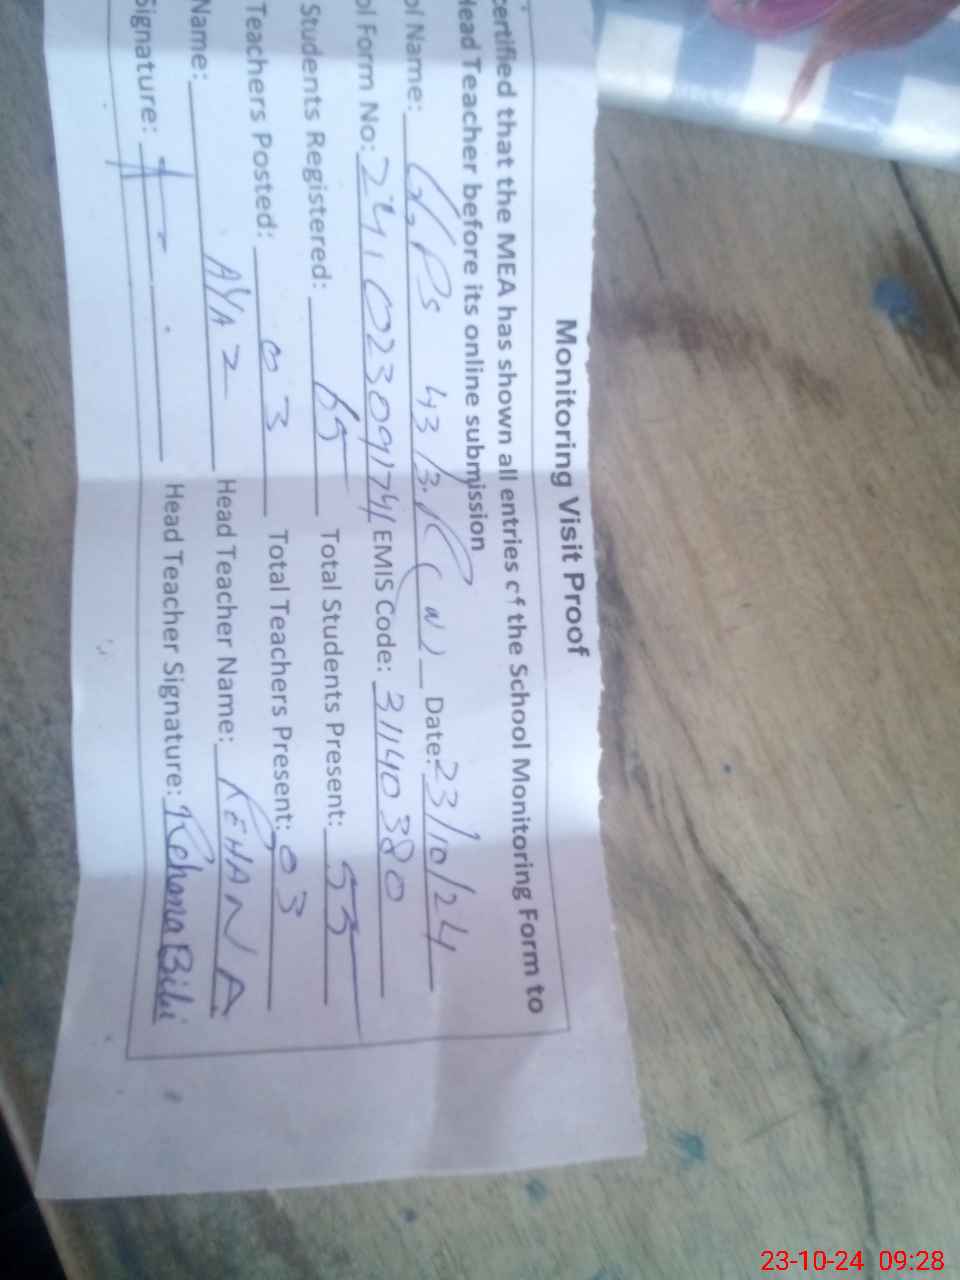 Monitoring Visit Proof
certified that the MEA has shown all entries of the School Monitoring Form to
Head Teacher before its online submission
ol Name: G.PS 43/3.R (W) Date: 23/10/24
ol Form No: 241023091741 EMIS Code: 31140380
Students Registered: 65 Total Students Present: 55
Teachers Posted: 03 Total Teachers Present: 03
Name: AYAZ Head Teacher Name: REHANA
Signature: Head Teacher Signature: Rehana Bibi
23-10-24 09:28